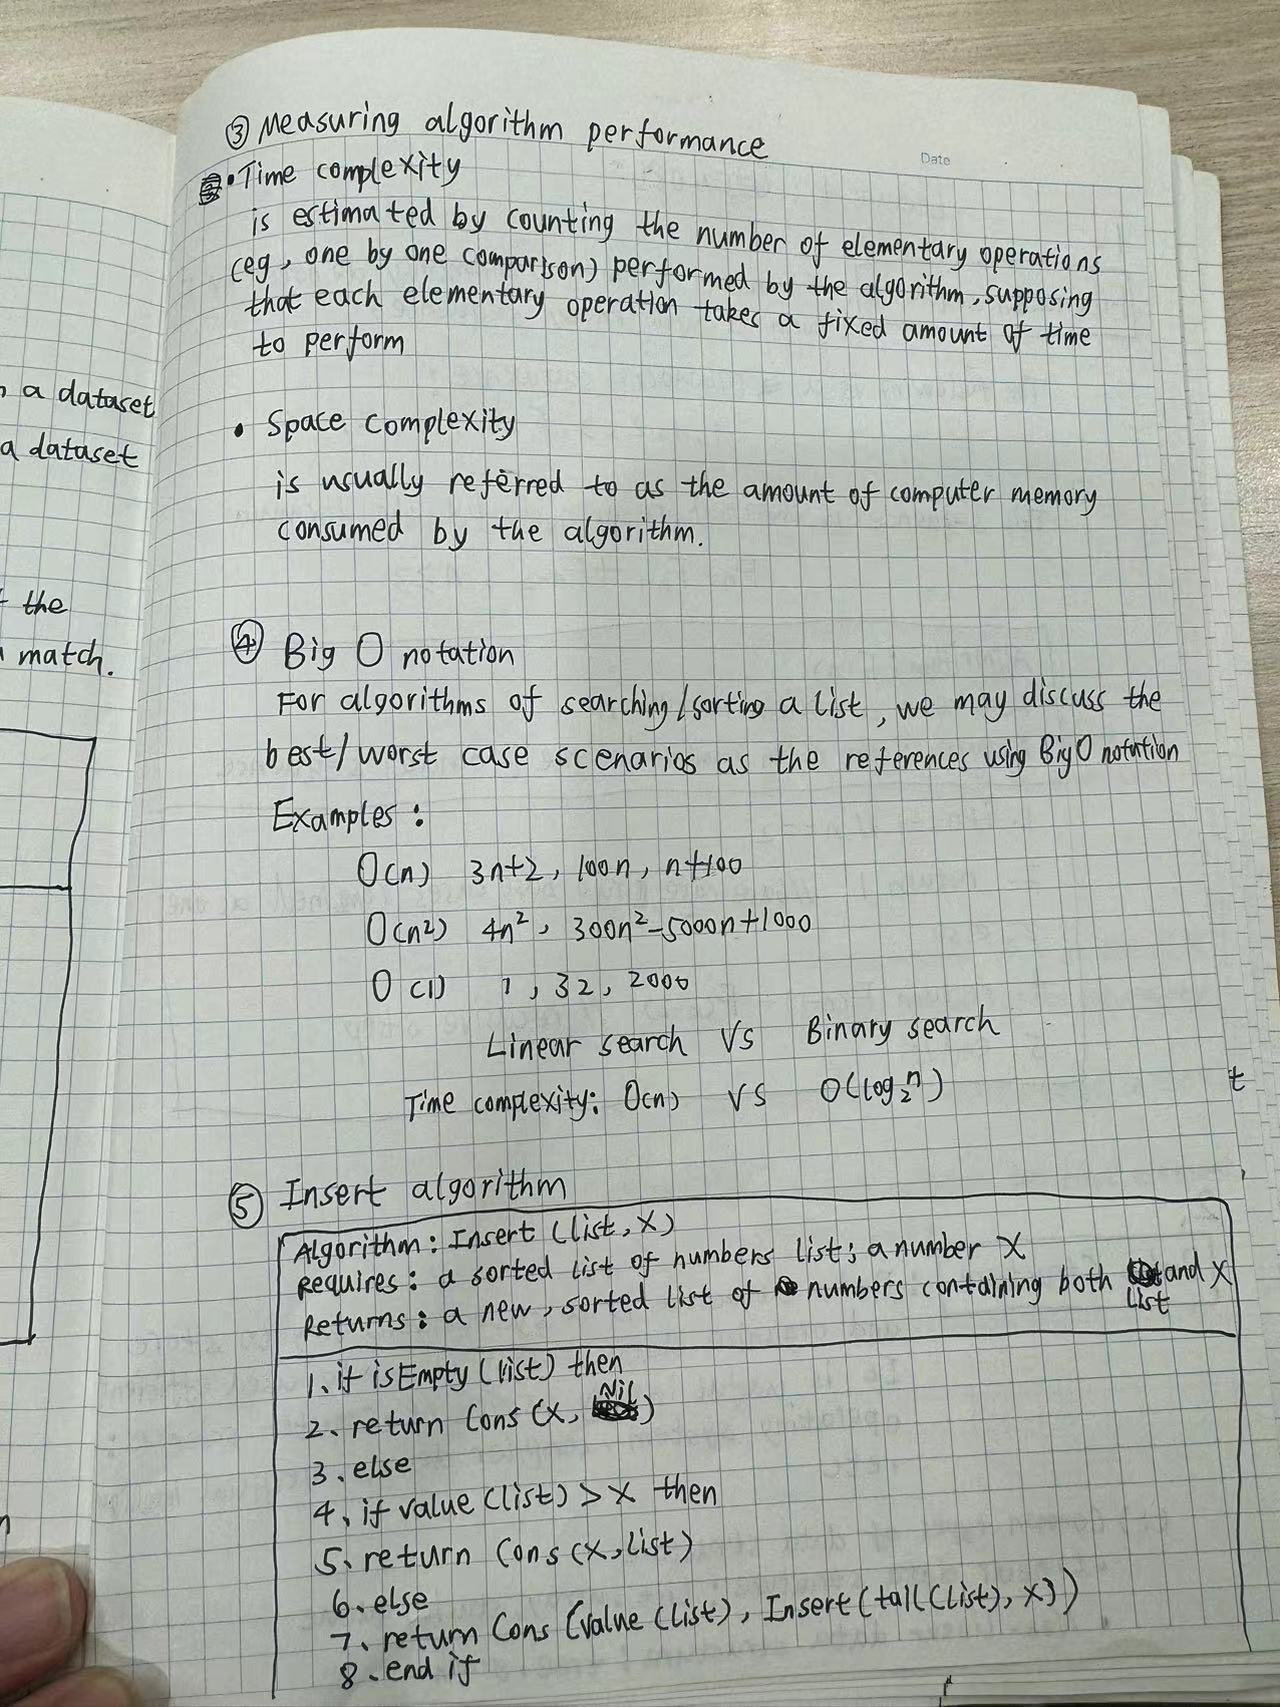 ③ Measuring algorithm performance
Date
• Time complexity
is estimated by counting the number of elementary operations
(eg, one by one comparison) performed by the algorithm, supposing
that each elementary operation takes a fixed amount of time
to perform
a dataset
• Space complexity
a dataset
is usually referred to as the amount of computer memory
consumed by the algorithm.
the
match.
④ Big O notation
For algorithms of searching/sorting a list, we may discuss the
best/worst case scenarios as the references using Big O notation
Examples:
O(n) 3n+2, 100n, n+100
O(n²) 4n², 300n²-5000n+1000
O(1) 1, 32, 2000
Linear search VS Binary search
Time complexity: O(n) VS O(log₂n)
t
⑤ Insert algorithm
Algorithm: Insert (list, X)
Requires: a sorted list of numbers list; a number X
Returns: a new, sorted list of numbers containing both list and X
1. if isEmpty (list) then
2. return Cons (X, Nil)
3. else
4. if value (list) > X then
5. return Cons (X, list)
6. else
7. return Cons (value (list), Insert (tail (list), X))
8. end if